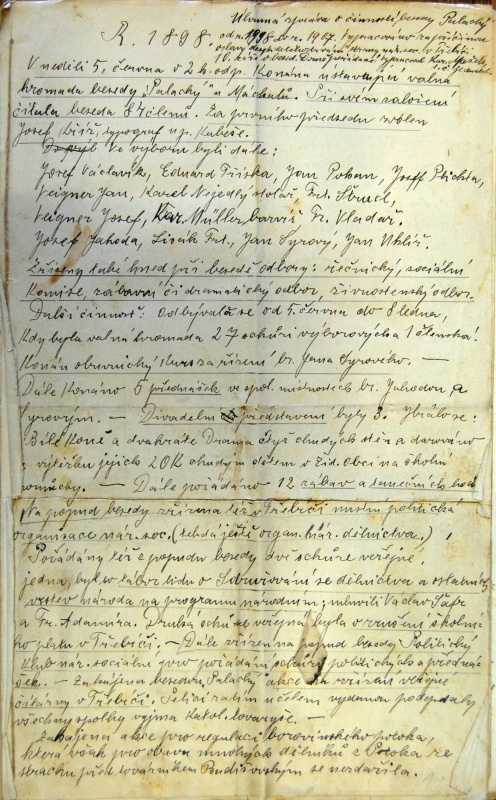 Úhrnná zpráva o činnosti besedy Palacký
R 1898. od r. 1898 do r. 1907. Vypracováno
oslavy
10.
V neděli 5. června o 2 h. odp. Konána ustavující valná
hromada besedy Palacký u Máchalů. Při svém založení
čítala beseda 84 členů. Za prvního předsedu zvolen
Josef Kříž, typograf u p. Kubeše.
Ve výboru byli dále:
Josef Václavík, Eduard Tříska, Jan Pokorn, Josef Plichta,
Veigner Jan, Karel Nejedlý stolař, Frt.
Veigner Josef, Kar. Müller barvíř, Fr. Kladař.
Josef Jahoda, Lisák Frt., Jan Syrový, Jan Uhlíř.
Zřízeny také hned při besedě odbory: řečnický, sociální
Komise, zábavní či dramatický odbor, živnostenský odbor.
Další činnost: Odbývala se od 5. června do 8 ledna,
kdy byla valná hromada 27 schůzí výborových a 1 členská.
Konán obuvnický kurs za řízení br. Jana Syrového. —
Dále Konáno 5 přednášek ve spol. místnostech br. Jahodou a
Syrovým. — Divadelní představení byly 3. Hrálo se:
Bílé Koně a dvakráte Drama čtyř chudých stěn a darováno
z výtěžku jejich 20K chudým dětem v Žid. obci na školní
pomůcky. — Dále pořádáno 12 zábav a tanečních
Na popud besedy zřízena též v Třebíči místní politická
organisace nár. soc. (tehdá ještě organ. nár. dělnictva.)
Pořádány též z popudu besedy dvě schůze veřejné,
jedna, byl to tábor lidu o Sdružování se dělnictva a ostatních
vrstev národa na programu národním; mluvili Václav Šafr
a Fr. Adamíra. Druhá schůze veřejná byla o zrušení školní-
ho platu v Třebíči. — Dále zřízen na popud besedy Politický
Klub nár. sociální pro pořádání schůzí politických a předná-
šek. — Zahájena besedou „Palacký" akce za zřízení veřejné
čítárny v Třebíči. Petici za tím účelem vydanou podepsaly
všechny spolky vyjma Katol. tovaryše. —
Zahájena akce pro regulaci borovinského potoka,
která však pro obavu mnohých dělníků z Potoka ze
strachu před továrníkem Budišovským se nezdařila.